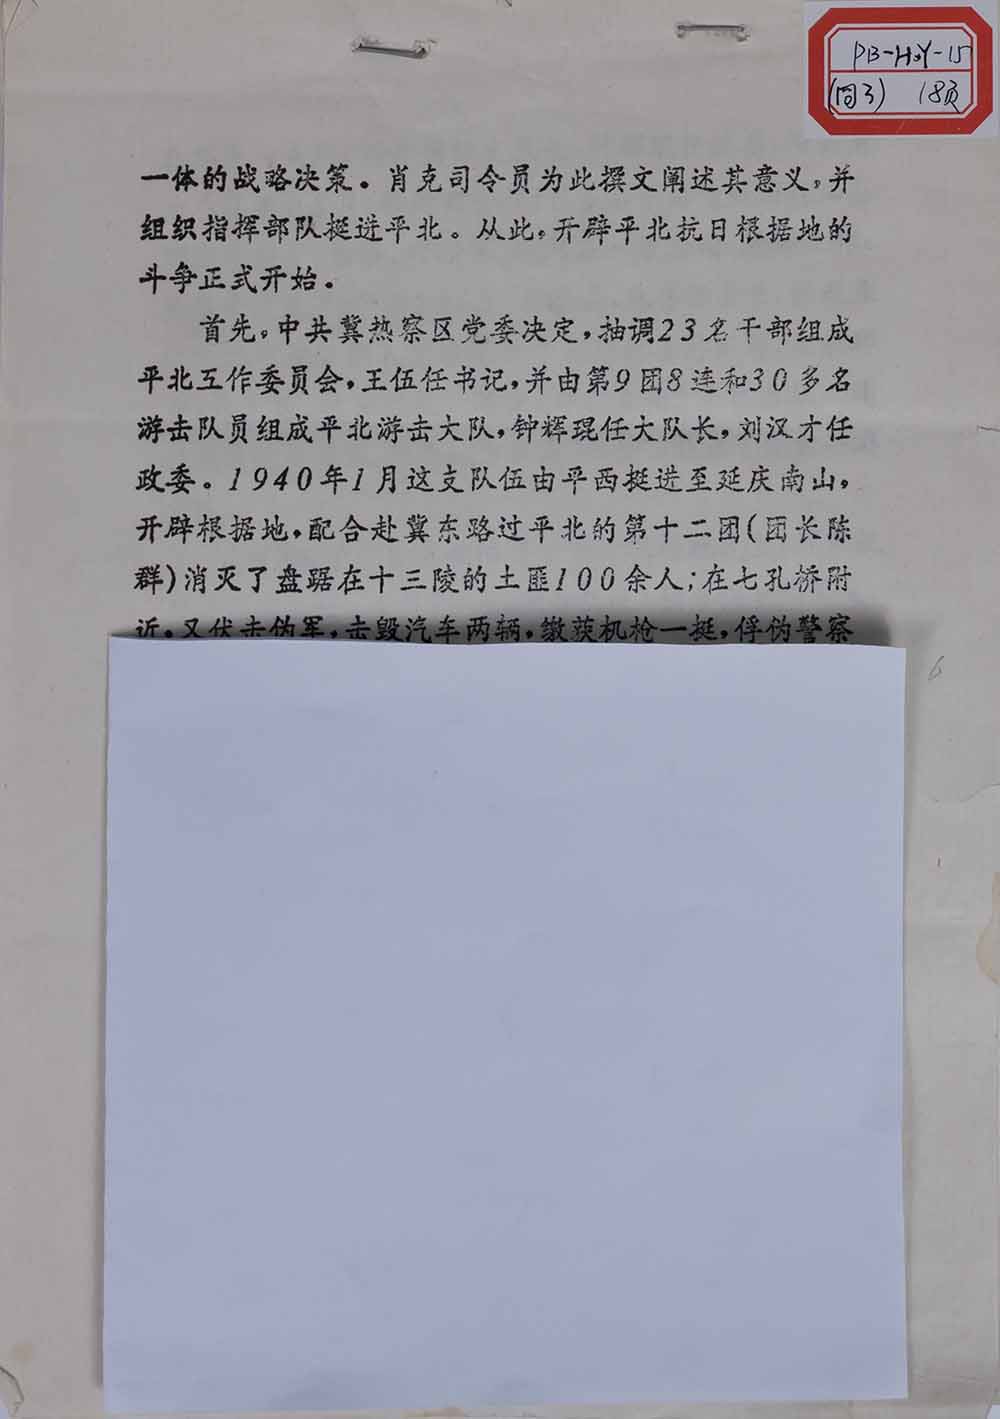 PB-HSY-15
(同3) 18页
一体的战略决策。肖克司令员为此撰文阐述其意义，并
组织指挥部队挺进平北。从此，开辟平北抗日根据地的
斗争正式开始。
首先，中共冀热察区党委决定，抽调23名干部组成
平北工作委员会，王伍任书记，并由第9团8连和30多名
游击队员组成平北游击大队，钟辉琨任大队长，刘汉才任
政委。1940年1月这支队伍由平西挺进至延庆南山，
开辟根据地，配合赴冀东路过平北的第十二团(团长陈
群)消灭了盘踞在十三陵的土匪100余人；在七孔桥附
近，又伏击伪军，击毁汽车两辆，缴获机枪一挺，俘伪警察